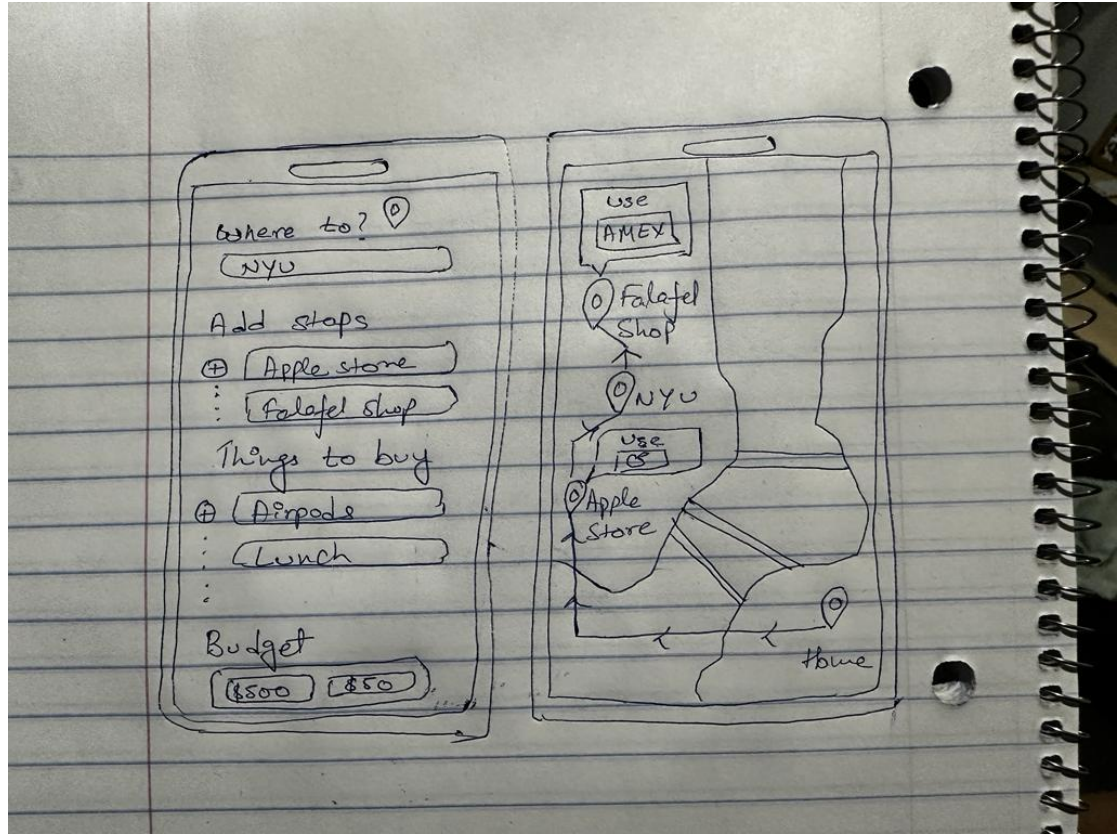 Where to?
NYU
Add stops
Apple store
Falafel shop
Things to buy
Airpods
Lunch
Budget
$500 $50
use
AMEX
Falafel
Shop
NYU
use
Apple
Store
Home